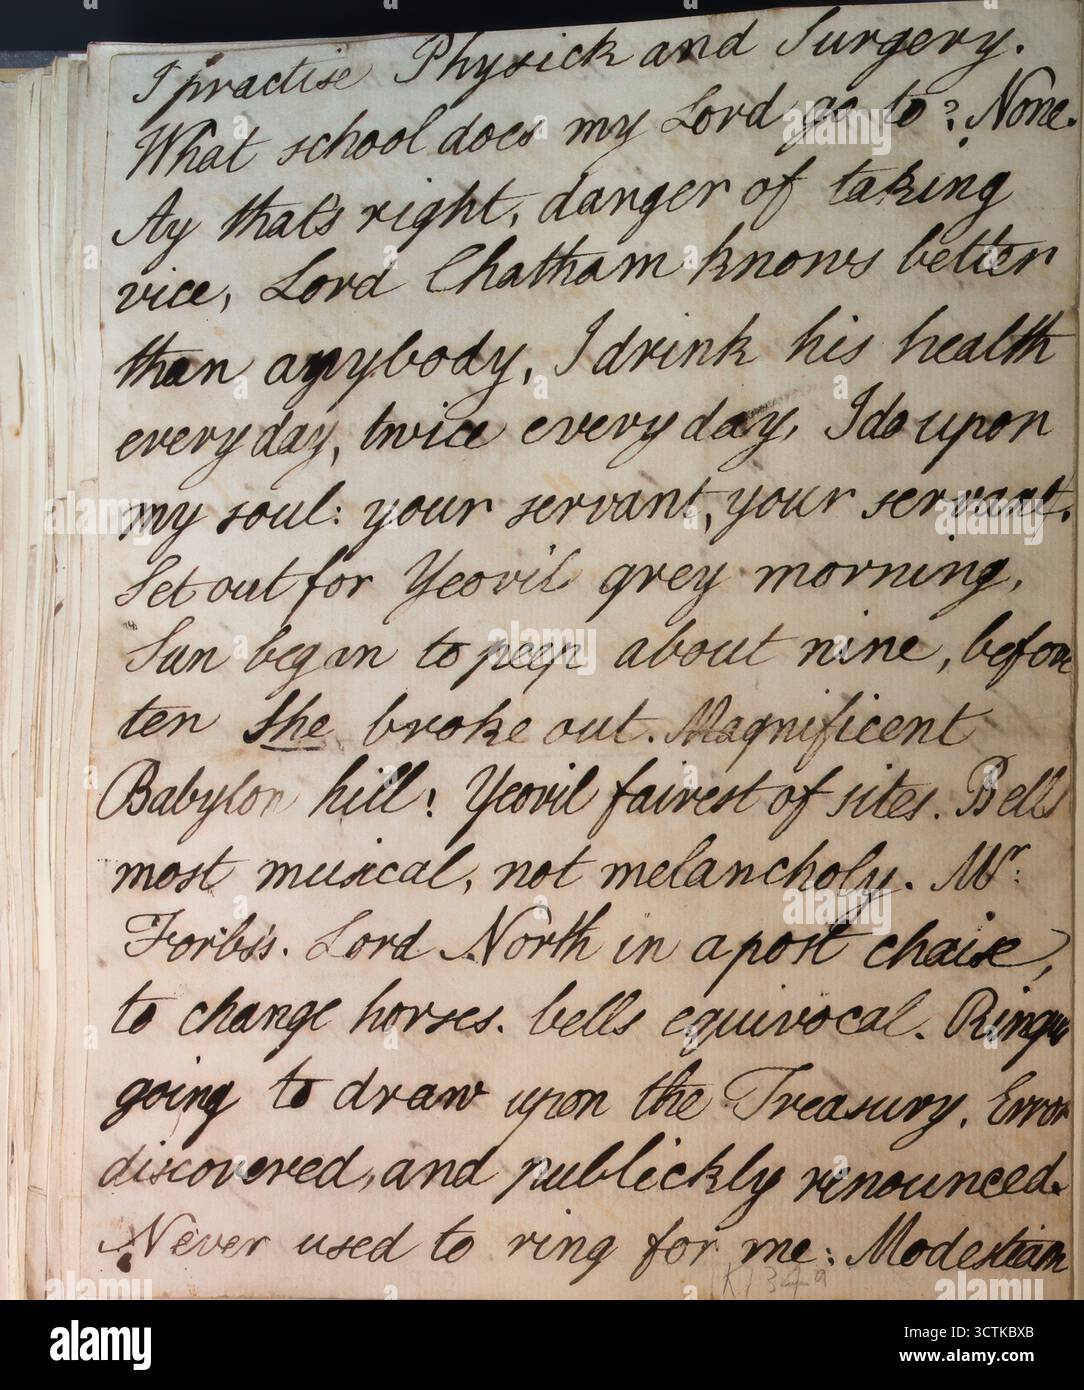 I practise Physick and Surgery.
What school does my Lord go to? None.
Ay that's right, danger of taking
vice, Lord Chatham knows better
than anybody, I drink his health
every day, twice every day, I do upon
my soul: your servant, your servant.
Set out for Yeovil grey morning,
Sun began to peep about nine, before
ten she broke out. Magnificent
Babylon hill! Yeovil fairest of sites. Bells
most musical, not melancholy. Mr.
Forbes's. Lord North in a post chaise,
to change horses. bells equivocal. Ringers
going to draw upon the Treasury. Error
discovered, and publickly renounced.
Never used to ring for me: Modestiam
K1349
alamy
Image ID: 3CTKBXB
www.alamy.com